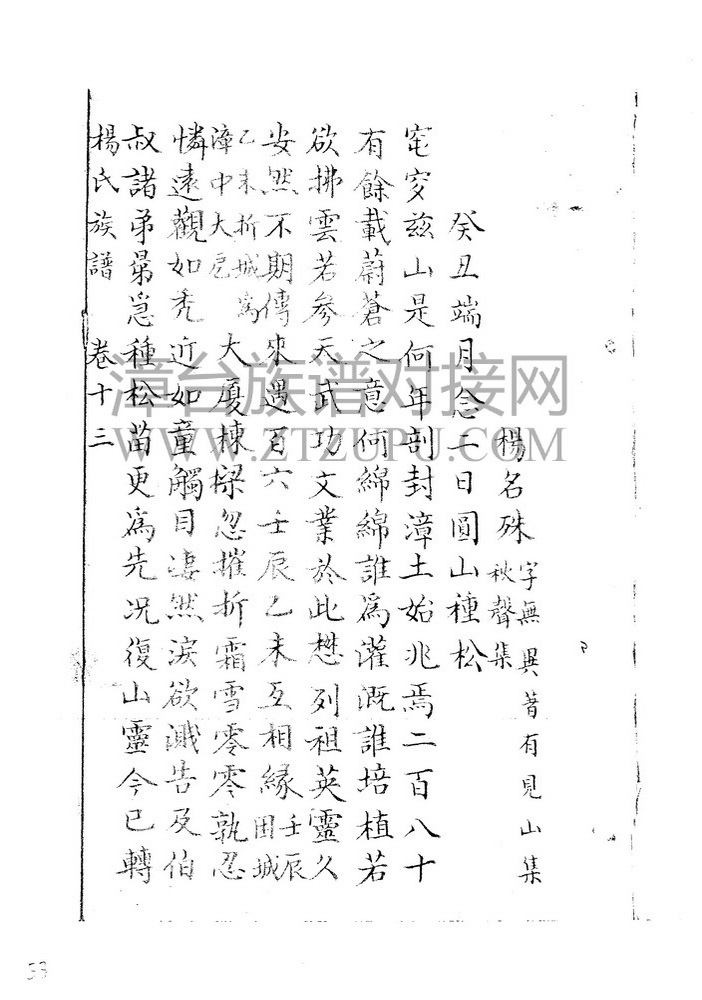 楊名殊 字無異著有見山集
秋聲集
癸丑端月念二日圓山種松
窀穸茲山是何年剖封漳土始兆焉二百八十
有餘載蔚蒼之意何綿綿誰為灌溉誰培植若
欲拂雲若參天武功文業於此懋列祖英靈久
安然不期傳來遇百六壬辰乙未互相緣壬辰
田城
乙未折城為
漳中大厄 大廈棟樑忽摧折霜雪零零孰忍
憐遠觀如禿近如童觸目淒然淚欲濺告及伯
叔諸弟曩急種松苗更為先況復山靈今已轉
楊氏族譜 卷十三
漳台族谱对接网
WWW.ZTZUPU.COM
53